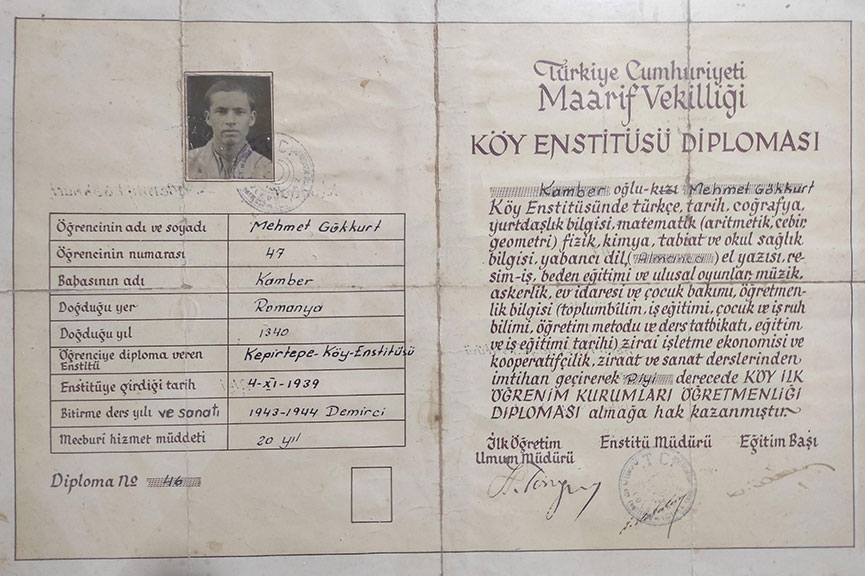 Öğrencinin adı ve soyadı Mehmet Gökkurt
Öğrencinin numarası 47
Babasının adı Kamber
Doğduğu yer Romanya
Doğduğu yıl 1340
Öğrenciye diploma veren Enstitü Kepirtepe-Köy-Enstitüsü
Enstitüye girdiği tarih 4-XI-1939
Bitirme ders yılı ve sanatı 1943-1944 Demirci
Mecburî hizmet müddeti 20 yıl
Diploma No 46
Türkiye Cumhuriyeti
Maarif Vekilliği
KÖY ENSTİTÜSÜ DİPLOMASI
Kamber oğlu-kızı Mehmet Gökkurt
Köy Enstitüsünde türkçe, tarih, coğrafya,
yurtdaşlık bilgisi, matematik (aritmetik, cebir,
geometri) fizik, kimya, tabiat ve okul sağlık
bilgisi, yabancı dil, (Almanca) el yazısı, re-
sim-iş, beden eğitimi ve ulusal oyunlar, müzik,
askerlik, ev idaresi ve çocuk bakımı, öğretmen-
lik bilgisi (toplumbilim, iş eğitimi, çocuk ve iş ruh
bilimi, öğretim metodu ve ders tatbikatı, eğitim
ve iş eğitimi tarihi) zirai işletme ekonomisi ve
kooperatifçilik, ziraat ve sanat derslerinden
imtihan geçirerek derecede KÖY İLK
ÖĞRENİM KURUMLARI ÖĞRETMENLİĞİ
DİPLOMASI almağa hak kazanmıştır
İlk Öğretim Umum Müdürü
Enstitü Müdürü
Eğitim Başı